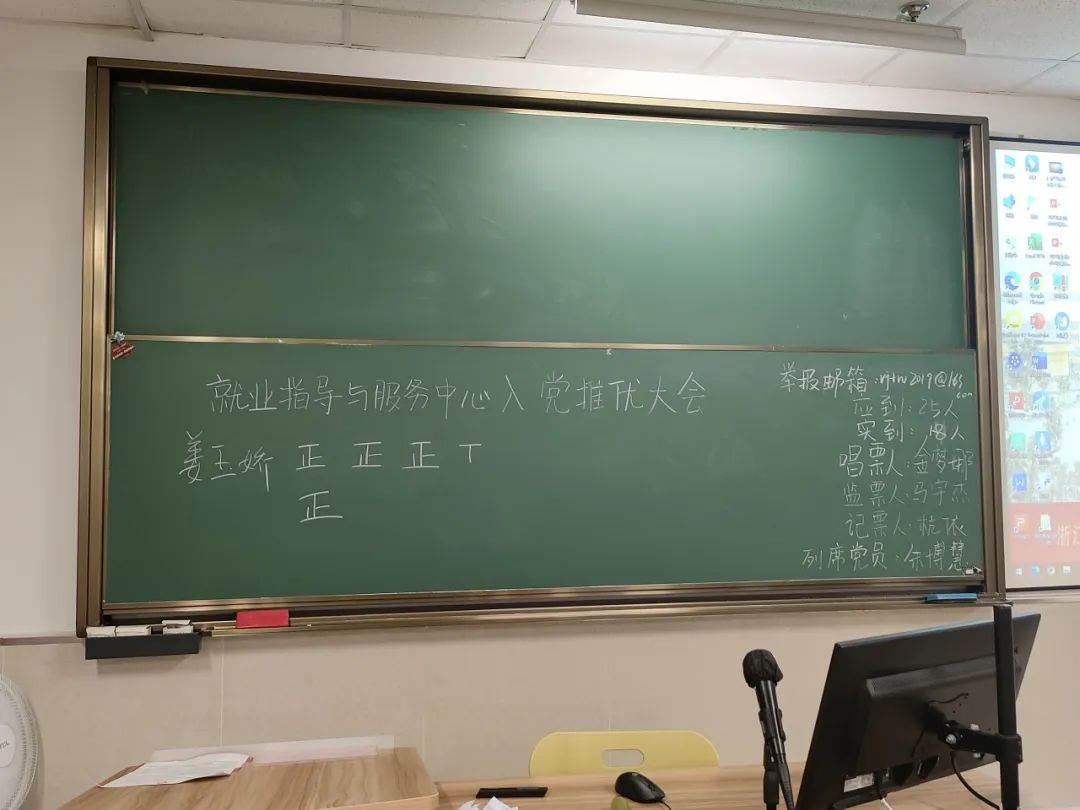 就业指导与服务中心入党推优大会
姜玉娇 正 正 正 丅
正
举报邮箱:
应到:25人
实到:18人
唱票人:金梦娜
监票人:马宇杰
记票人:杭依
列席党员:余博慧